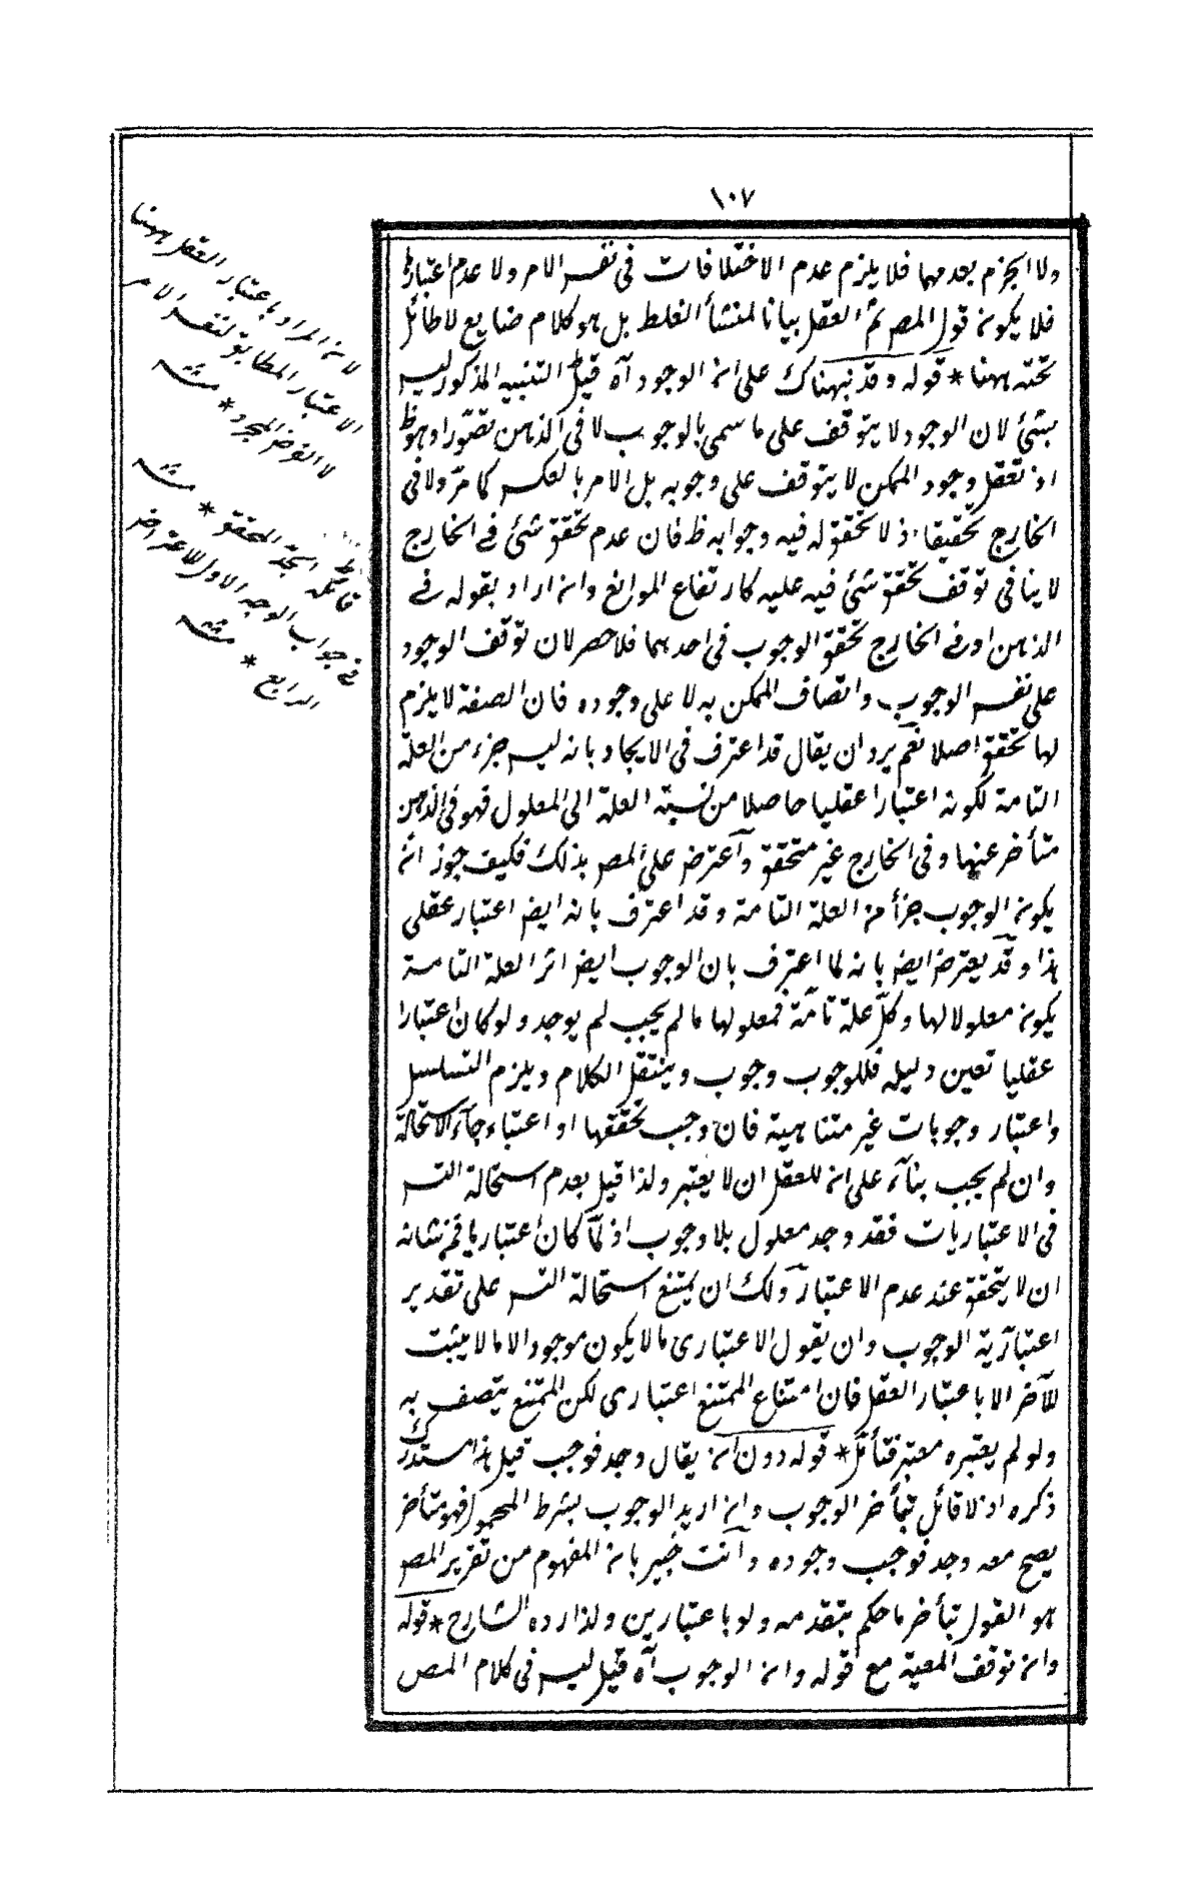 ١٠٧
ولا الجزم بعدمها فلا يلزم عدم الاختلافات في نفس الامر ولا عدم اعتبارها
فلا يكون قول المص ثم العقل بيانا لمنشأ الغلط بل هو كلام ضايع لا طائل
تحته ههنا * قوله وقد نبهناك على ان الوجود آه قيل التنبيه المذكور ليس
بشئ لان الوجود لا يتوقف على ما سمي بالوجوب لا في الذهن تصوّرا وهو ظ
اذ تعقل وجود الممكن لا يتوقف على وجوبه بل الامر بالعكس كما مرّ ولا في
الخارج تحقيقا اذ لا تحقق له فيه وجوابه ظ فان عدم تحقق شئ في الخارج
لا ينافي توقف تحقق شئ فيه عليه كارتفاع الموانع وان اراد بقوله في
الذهن او في الخارج تحقق الوجوب في احدهما فلا حصر لان توقف الوجود
على نفس الوجوب واتصاف الممكن به لا على وجوده فان الصفة لا يلزم
لها تحقق اصلا نعم يرد ان يقال قد اعترف في الايجاد بانه ليس جزء من العلة
التامة لكونه اعتبارا عقليا حاصلا من نسبة العلة الى المعلول فهو في الذهن
متأخر عنها وفي الخارج غير متحقق وآعترض على المص بذلك فكيف جوز ان
يكون الوجوب جزأ من العلة التامة وقد اعترف بانه ايض اعتبار عقلي
هذا وقد يعترض ايض بانه لما اعترف بان الوجوب ايض اثر العلة التامة
يكون معلولا لها وكلّ علة تامّة فمعلولها ما لم يجب لم يوجد ولو كان اعتبارا
عقليا تعين دليله فللوجوب وجوب وينتقل الكلام ويلزم التسلسل
واعتبار وجوبات غير متناهية فان وجب تحققها او اعتباء جآء الاستحالة
وان لم يجب بنآء على ان للعقل ان لا يعتبر ولذا قيل بعدم استحالة التس
في الاعتباريات فقد وجد معلول بلا وجوب اذ لمّا كان اعتباريا فمن شانه
ان لا يتحقق عند عدم الاعتبار ولك ان يمتنع استحالة التس على تقدير
اعتبارية الوجوب وان يقول الاعتباري ما لا يكون موجودا لا ما لا يثبت
للآخر الا باعتبار العقل فان امتناع الممتنع اعتباري لكن الممتنع يتصف به
ولو لم يعتبره معتبر فتأمّل * قوله دون ان يقال وجد فوجب قيل هذا مستدرك
ذكره اذ لا قائل بتأخر الوجوب وان اريد الوجوب بشرط المحمول فهو متأخر
يصح معه وجد فوجب وجوده وآنت خبير بان المفهوم من تقرير المص
هو القول بتأخر ما حكم بتقدمه ولو باعتبارين ولذا رده الشارح * قوله
وان توقف المعية مع قوله وان الوجوب آه قيل ليس في كلام المص
لان المراد باعتبار العقل ههنا
الاعتبار المطابق لنفس الامر
لا الفرض المجرد *
قائله الجدّ المحقق *
في جواب الوجه الاول للاعتراض
الرابع *